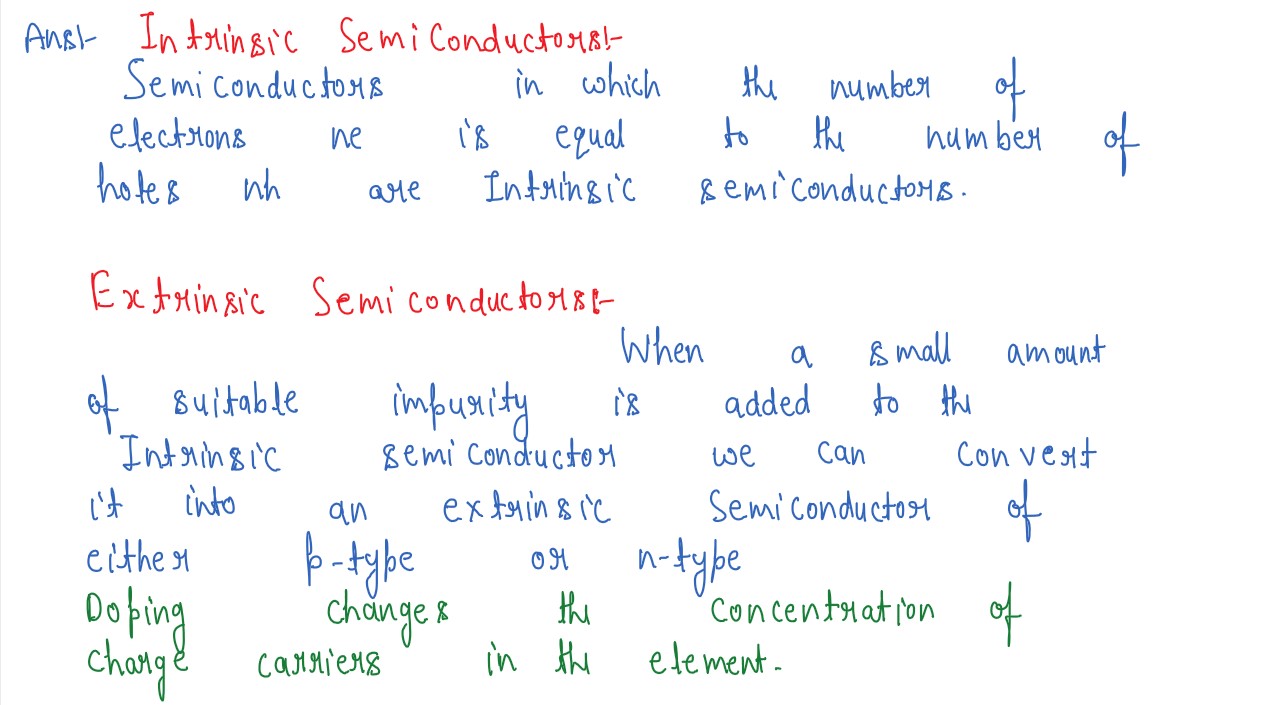 Ans:- Intrinsic Semiconductors:-
Semiconductors in which the number of
electrons ne is equal to the number of
holes nh are Intrinsic semiconductors.
Extrinsic Semiconductors:-
When a small amount
of suitable impurity is added to the
Intrinsic semiconductor we can convert
it into an extrinsic semiconductor of
either p-type or n-type
Doping changes the concentration of
charge carriers in the element.